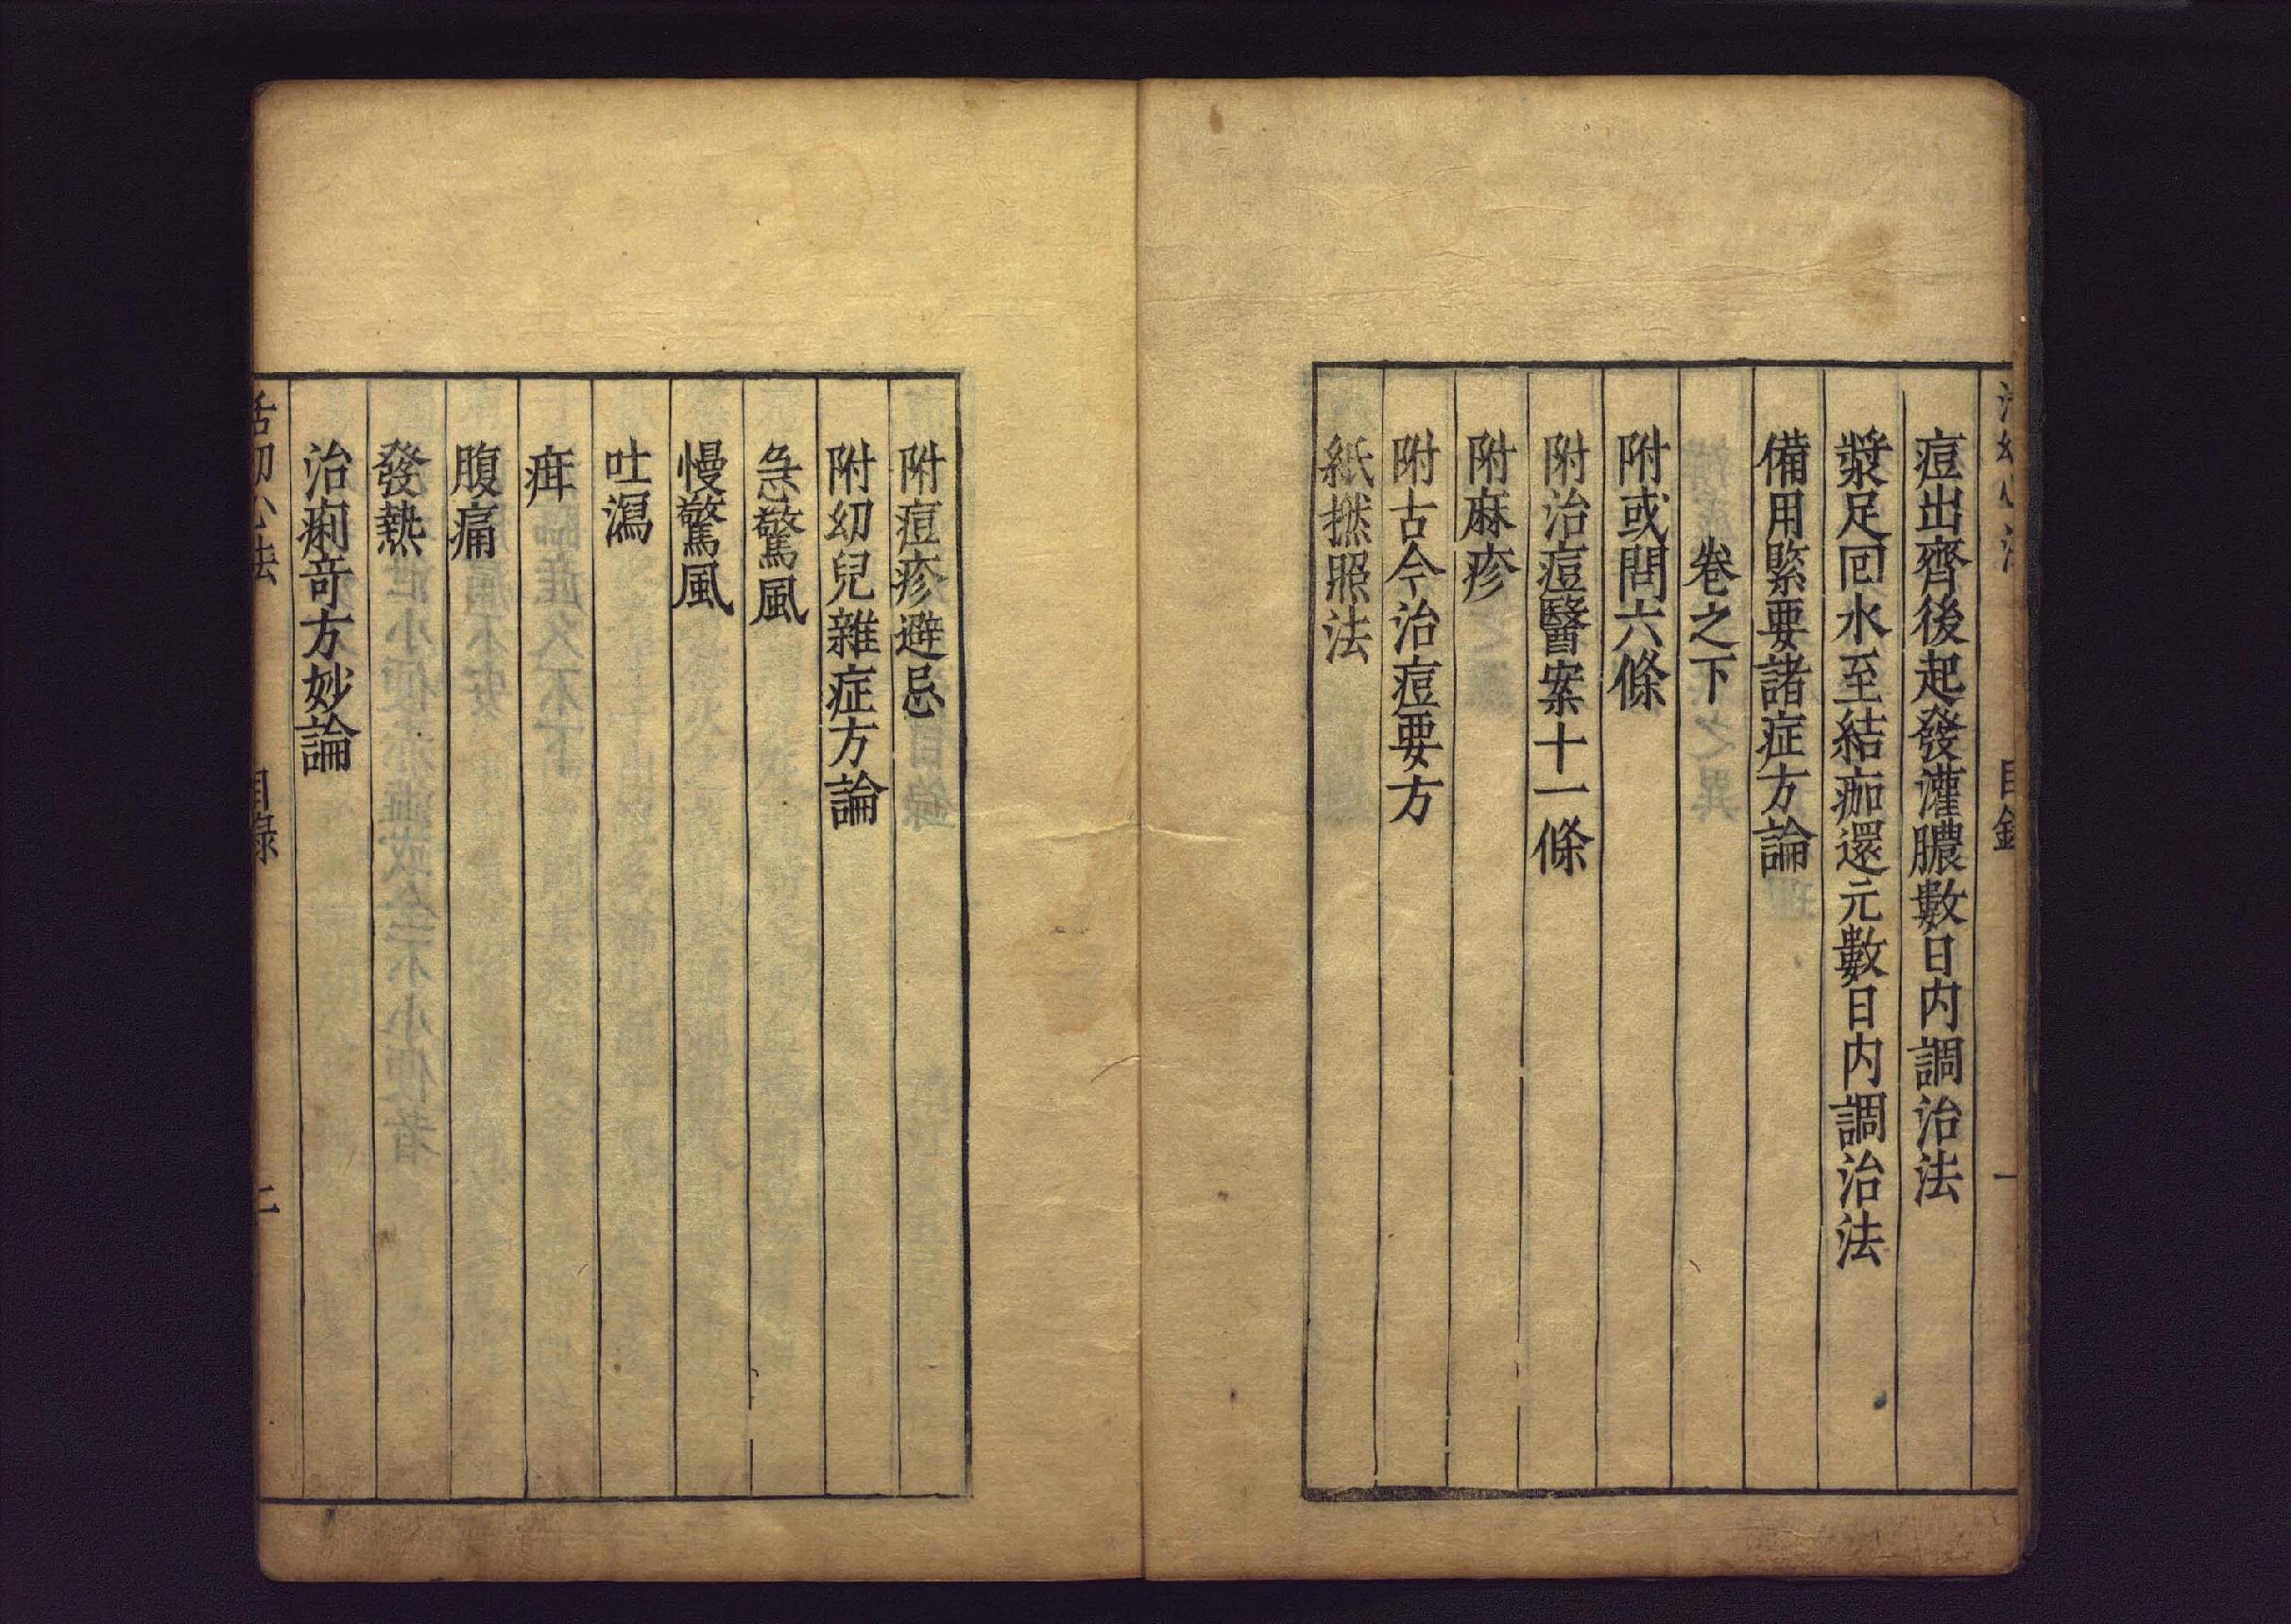 痘出齊後起發灌膿數日内調治法
漿足回水至結痂還元數日内調治法
備用緊要諸症方論
卷之下
附或問六條
附治痘醫案十一條
附麻疹
附古今治痘要方
紙撚照法
附痘疹避忌
附幼兒雜症方論
急驚風
慢驚風
吐瀉
疳
腹痛
發熱
治痢竒方妙論
目錄
二